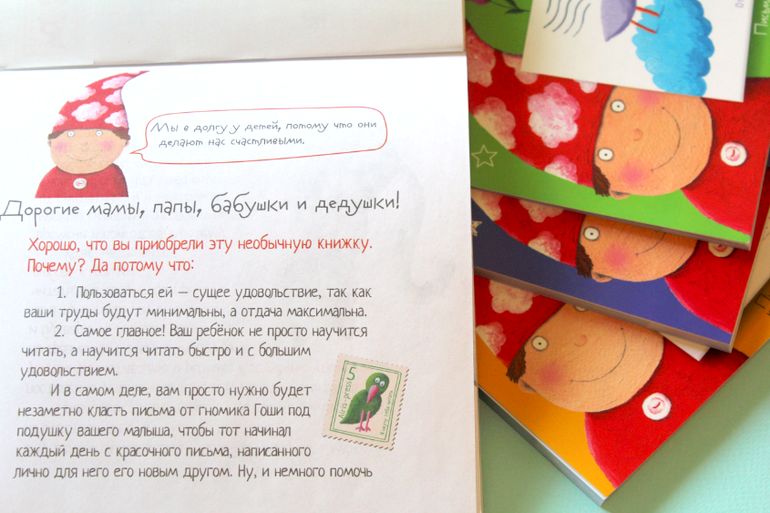 Мы в долгу у детей, потому что они
делают нас счастливыми.
Дорогие мамы, папы, бабушки и дедушки!
Хорошо, что вы приобрели эту необычную книжку.
Почему? Да потому что:
1. Пользоваться ей — сущее удовольствие, так как
ваши труды будут минимальны, а отдача максимальна.
2. Самое главное! Ваш ребёнок не просто научится
читать, а научится читать быстро и с большим
удовольствием.
И в самом деле, вам просто нужно будет
незаметно класть письма от гномика Гоши под
подушку вашего малыша, чтобы тот начинал
каждый день с красочного письма, написанного
лично для него его новым другом. Ну, и немного помочь
5